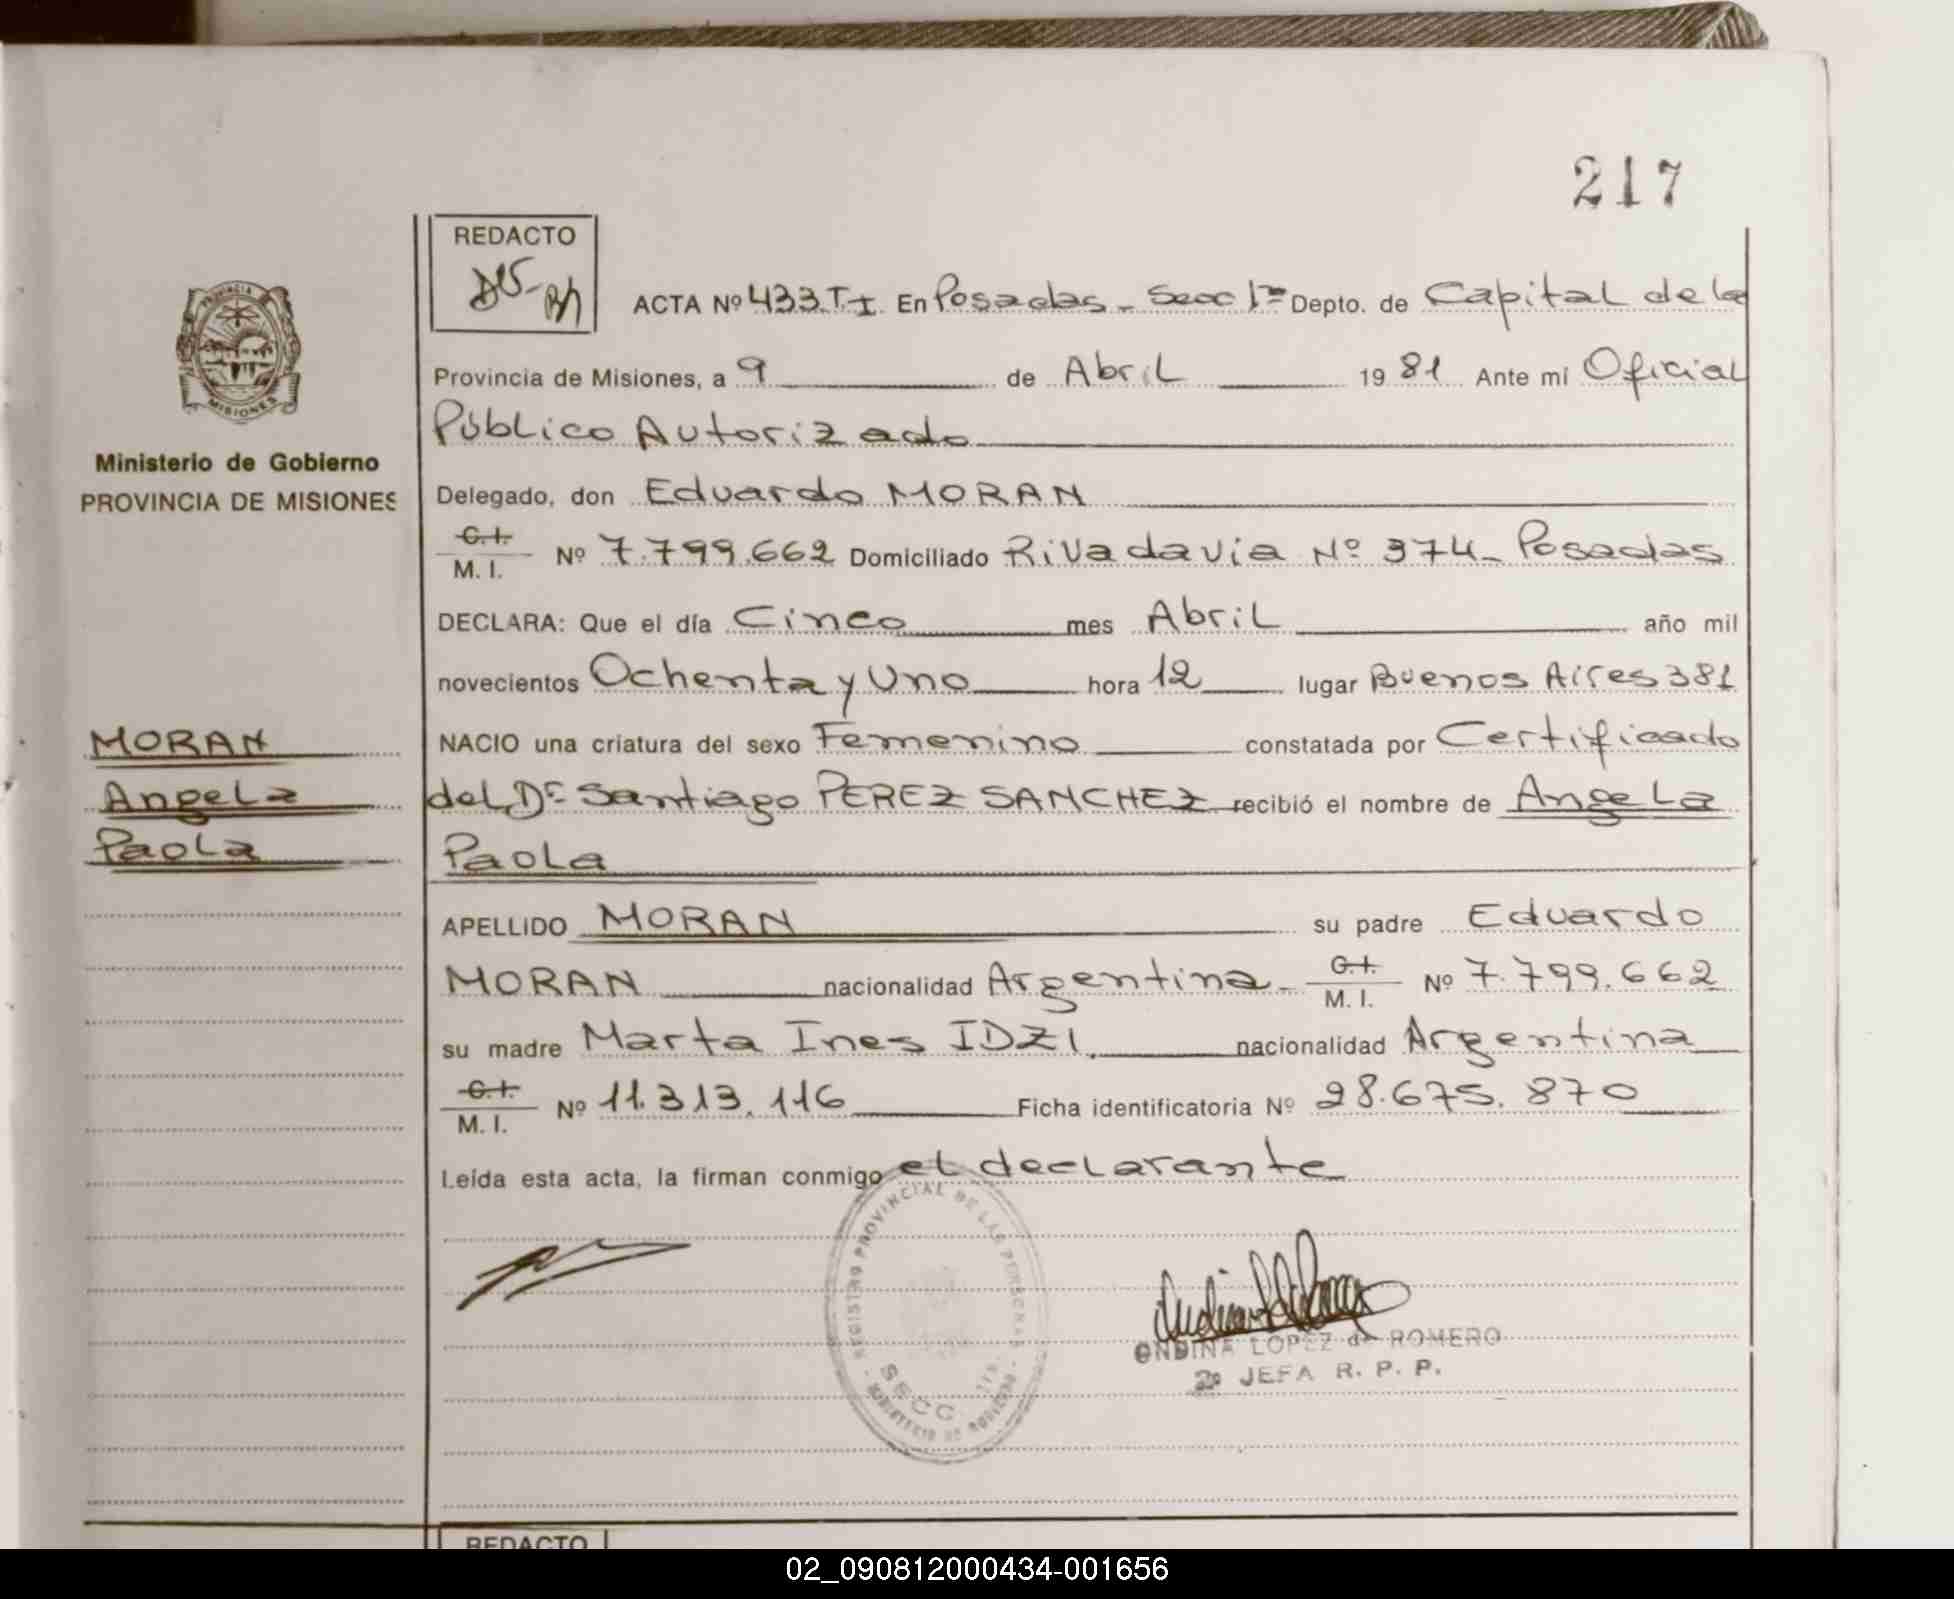 217
REDACTO
ACTA Nº 433.T.I. En Posadas - Secc 1ª Depto. de Capital de la
Provincia de Misiones, a 9 de Abril 1981 Ante mi Oficial
Público Autorizado
Delegado, don Eduardo MORAN
C.I.
M. I. Nº 7.799.662 Domiciliado Rivadavia Nº 374_ Posadas
DECLARA: Que el día Cinco mes Abril año mil
novecientos Ochenta y Uno hora 12 lugar Buenos Aires 381
NACIO una criatura del sexo Femenino constatada por Certificado
del Dr Santiago PEREZ SANCHEZ recibió el nombre de Angela
Paola
APELLIDO MORAN su padre Eduardo
MORAN nacionalidad Argentina- C.I. M. I. Nº 7.799.662
su madre Marta Ines IDZI. nacionalidad Argentina
C.I.
M. I. Nº 11.313.116 Ficha identificatoria Nº 28.675.870
Leída esta acta, la firman conmigo el declarante
PROVINCIA
MISIONES
Ministerio de Gobierno
PROVINCIA DE MISIONES
MORAN
Angela
Paola
REGISTRO PROVINCIAL DE LAS PERSONAS
SECC
MINISTERIO DE GOBIERNO
ONDINA LOPEZ de ROMERO
2º JEFA R. P. P.
REDACTO
02_090812000434-001656